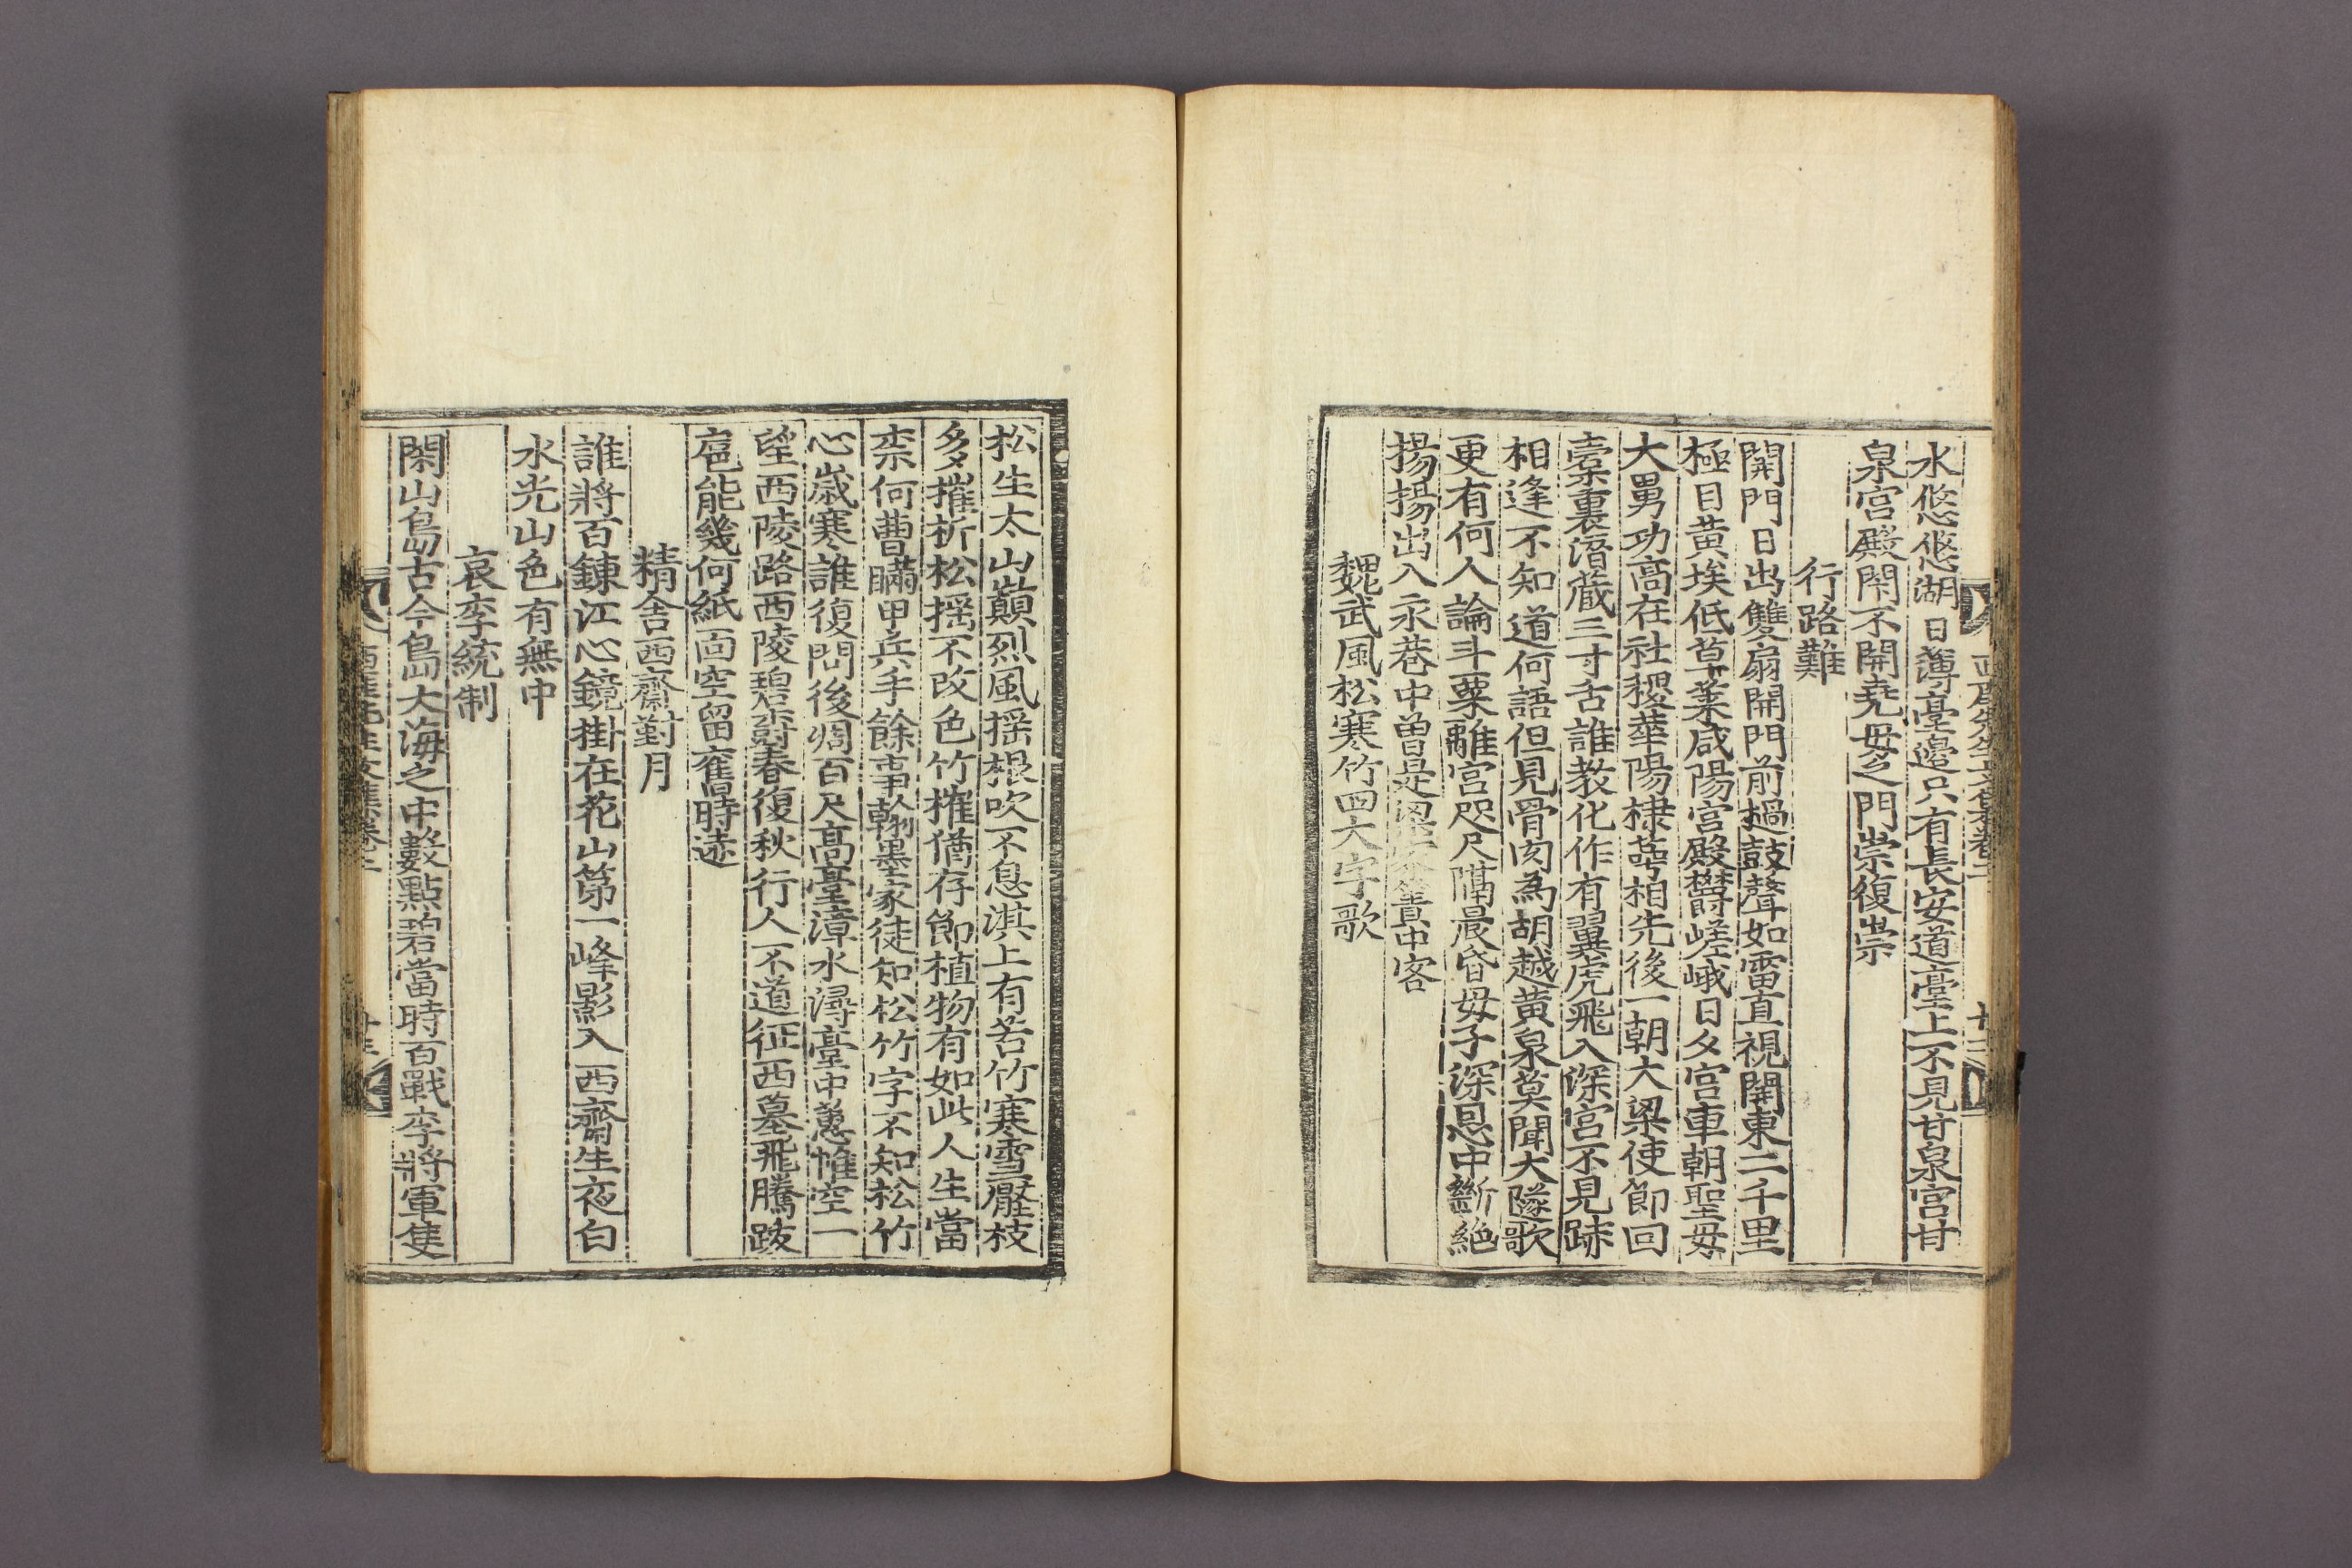 水悠悠湖日薄臺邊只有長安道臺上不見甘泉宮甘
泉宮殿閉不開堯母之門崇復崇
行路難
開門日出雙扇開門前撾鼓聲如雷直視關東二千里
極目黃埃低草萊咸陽宮殿欝嵯峨日夕宮車朝聖母
大舅功高在社稷華陽棣萼相先後一朝大梁使節回
橐裏潛藏三寸舌誰敎化作有翼虎飛入深宮不見跡
相逢不知道何語但見骨肉為胡越黃泉莫聞大隧歌
更有何人論斗粟離宮咫尺隔晨昏母子深恩中斷絶
揚揚出入永巷中曽是簀中客
魏武風松寒竹四大字歌
松生太山巔烈風揺根吹不息淇上有苦竹寒雪壓枝
多摧折松揺不改色竹摧猶存節植物有如此人生當
柰何曹瞞甲兵手餘事翰墨家徒知松竹字不知松竹
心歲寒誰復問後凋百尺高臺漳水潯臺中蕙帷空一
望西陵路西陵碧樹春復秋行人不道征西墓飛騰跋
扈能幾何紙面空留舊時迹
精舍西齋對月
誰將百鍊江心鏡掛在花山第一峰影入西齋生夜白
水光山色有無中
哀李統制
閑山島古今島大海之中數點碧當時百戰李將軍隻